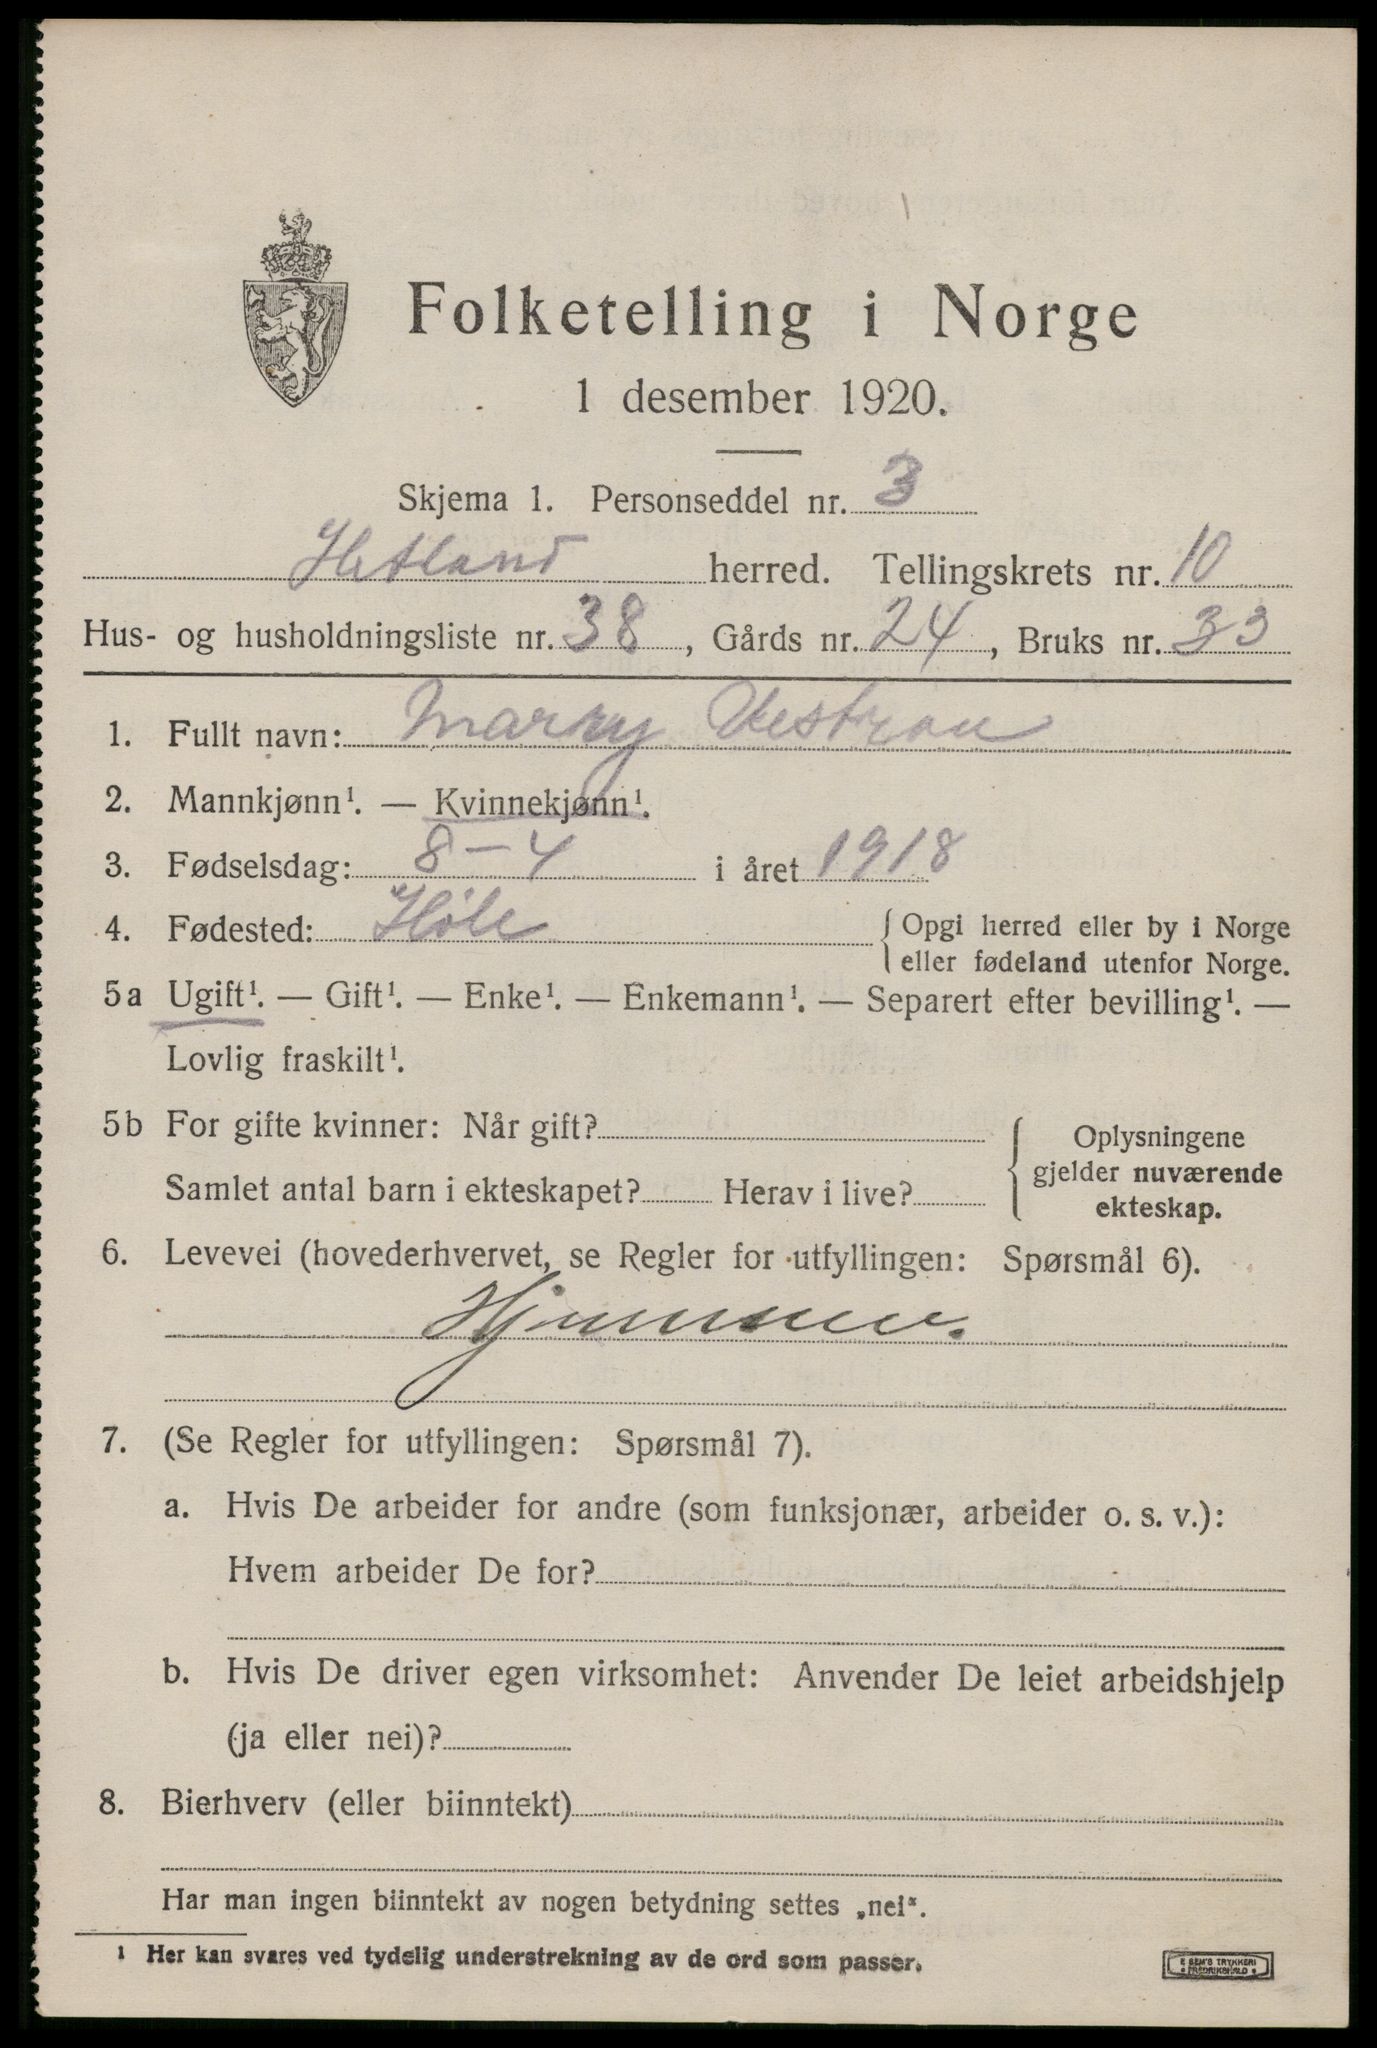 Folketelling i Norge
1 desember 1920.
Skjema 1. Personseddel nr. 3
Hetland herred. Tellingskrets nr. 10
Hus- og husholdningsliste nr. 38, Gårds nr. 24, Bruks nr. 33
1. Fullt navn: Marry Vestrou
2. Mannkjønn¹. — Kvinnekjønn¹.
3. Fødselsdag: 8-4 i året 1918
4. Fødested: Høle { Opgi herred eller by i Norge
eller fødeland utenfor Norge.
5a Ugift¹. — Gift¹. — Enke¹. — Enkemann¹. — Separert efter bevilling¹. —
Lovlig fraskilt¹.
5b For gifte kvinner: Når gift?
Samlet antal barn i ekteskapet? Herav i live?
{ Oplysningene
gjelder nuværende
ekteskap.
6. Levevei (hovederhvervet, se Regler for utfyllingen: Spørsmål 6).
Hjemme.
7. (Se Regler for utfyllingen: Spørsmål 7).
a. Hvis De arbeider for andre (som funksjonær, arbeider o. s. v.):
Hvem arbeider De for?
b. Hvis De driver egen virksomhet: Anvender De leiet arbeidshjelp
(ja eller nei)?
8. Bierhverv (eller biinntekt)
Har man ingen biinntekt av nogen betydning settes „nei“.
¹ Her kan svares ved tydelig understrekning av de ord som passer.
E SEM'S TRYKKERI
FREDRIKSHALD